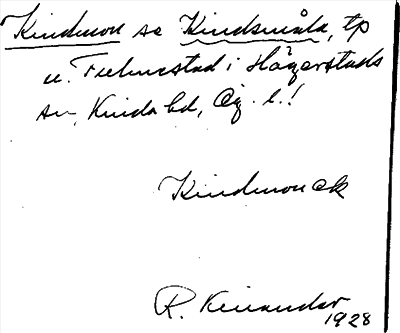 Kindmon se Kindsmåla, tp
u. Fulmestad i Hägerstads
sn, Kinda hd, Ög. l.!
Kindmon ek
R. Kinander
1928